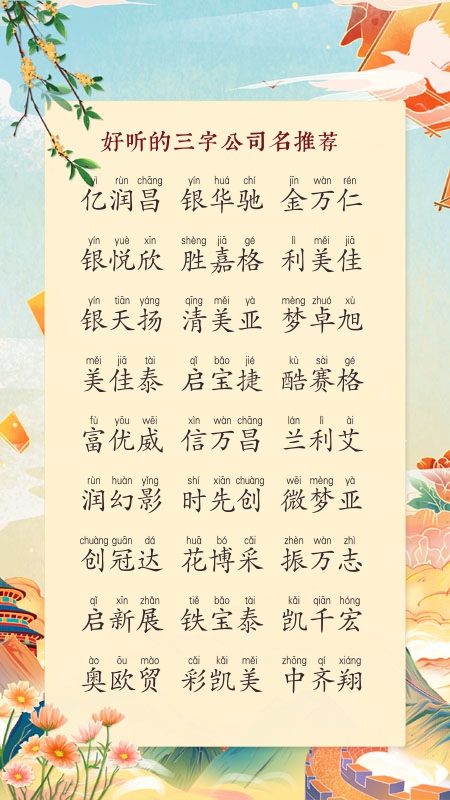 好听的三字公司名推荐
yì rùn chāng yín huá chí jīn wàn rén
亿润昌 银华驰 金万仁
yín yuè xīn shèng jiā gé lì měi jiā
银悦欣 胜嘉格 利美佳
yín tiān yáng qīng měi yà mèng zhuó xù
银天扬 清美亚 梦卓旭
měi jiā tài qǐ bǎo jié kù sài gé
美佳泰 启宝捷 酷赛格
fù yōu wēi xìn wàn chāng lán lì ài
富优威 信万昌 兰利艾
rùn huàn yǐng shí xiān chuàng wēi mèng yà
润幻影 时先创 微梦亚
chuàng guān dá huā bó cǎi zhèn wàn zhì
创冠达 花博采 振万志
qǐ xīn zhǎn tiě bǎo tài kǎi qiān hóng
启新展 铁宝泰 凯千宏
ào ōu mào cǎi kǎi měi zhōng qí xiáng
奥欧贸 彩凯美 中齐翔